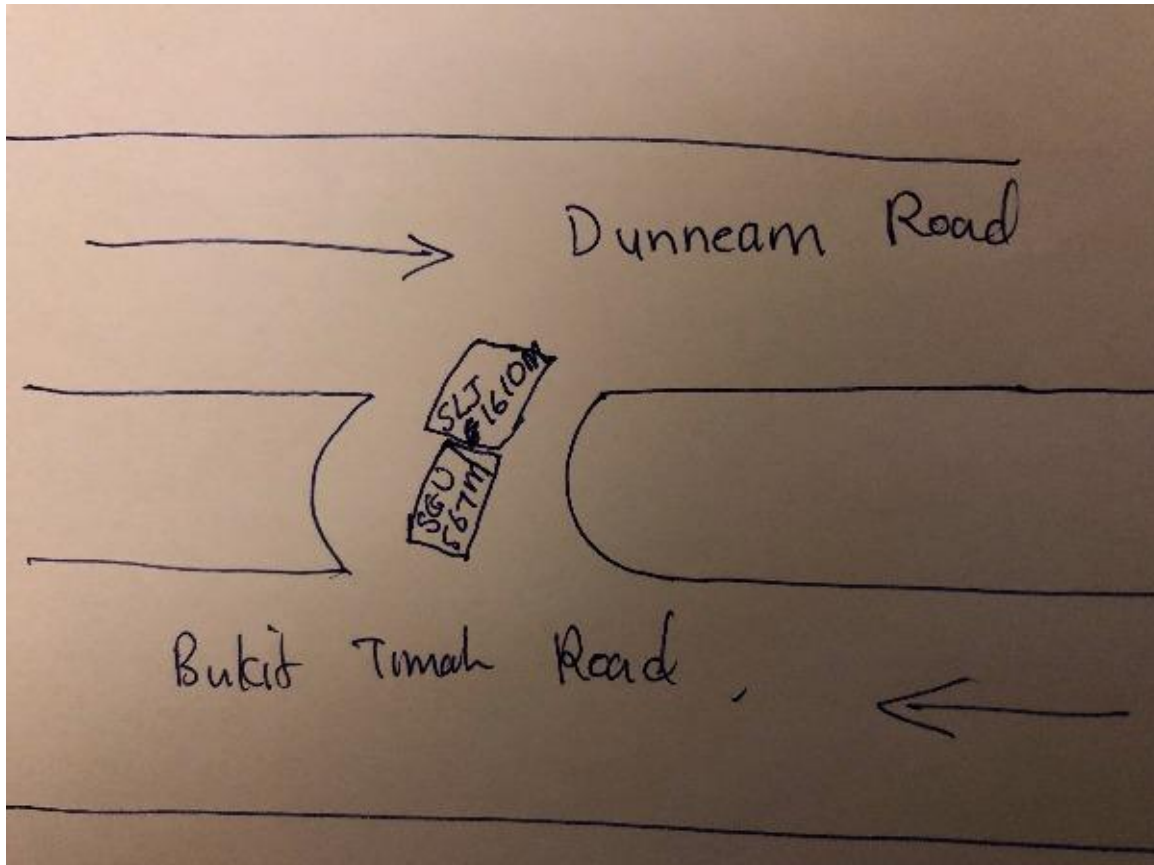 Dunneam Road
SLJ
1610M
SGU
567M
Bukit Timah Road,